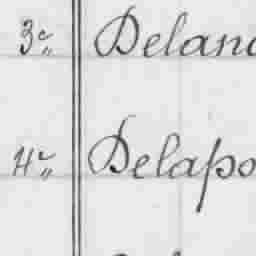 3e Delan
4e Delapo